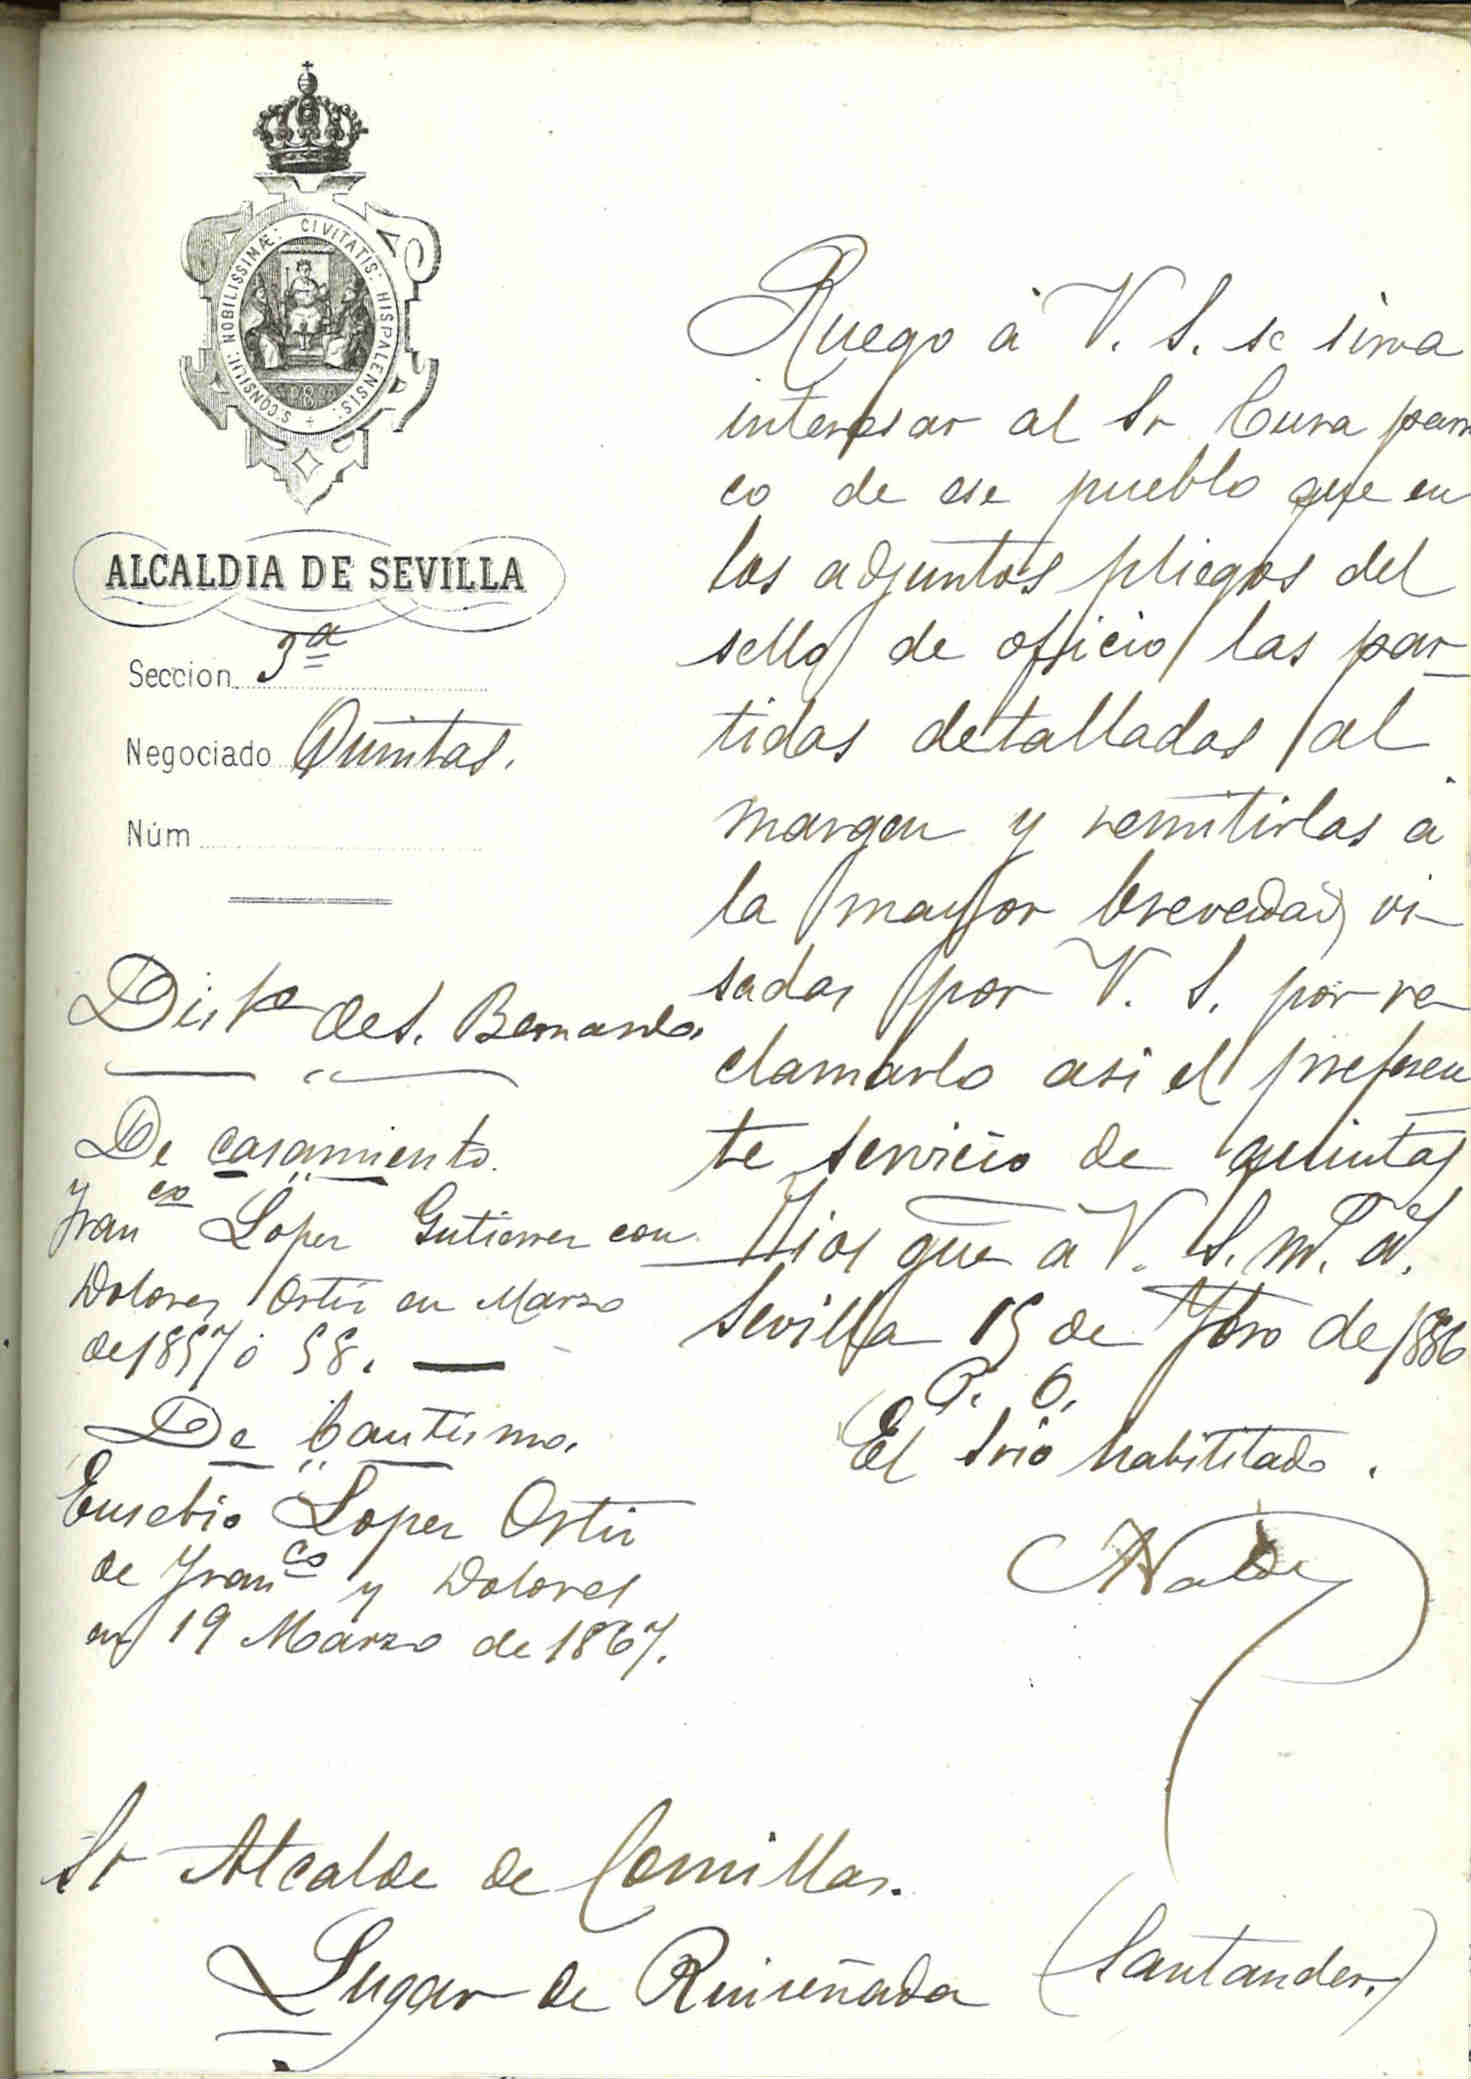 S: CONSILII: NOBILISSIMÆ: CIVITATIS: HISPALENSIS: +
NO8DO
ALCALDIA DE SEVILLA
Seccion 3ª
Negociado Quintas.
Núm
Distº de S. Bernardo
De casamiento.
Franco Lopez Gutierrez con
Dolores Ortiz en Marzo
de 1857 ó 58.
De bautismo.
Eusebio Lopez Ortiz
de Franco y Dolores
en 19 Marzo de 1867.
Ruego á V. S. se sirva
interesar al Sr Cura parro
co de ese pueblo que en
los adjuntos pliegos del
sello de oficio las par-
tidas detalladas al
margen y remitirlas á
la mayor brevedad vi-
sadas por V. S. por re
clamarlo asi el preferen
te servicio de quintas
Dios gue á V. S. m. a.
Sevilla 15 de 7bro de 1886
P. O.
El Srio habilitado.
Sr Alcalde de Comillas.
Lugar de Ruiseñada (Santander.)